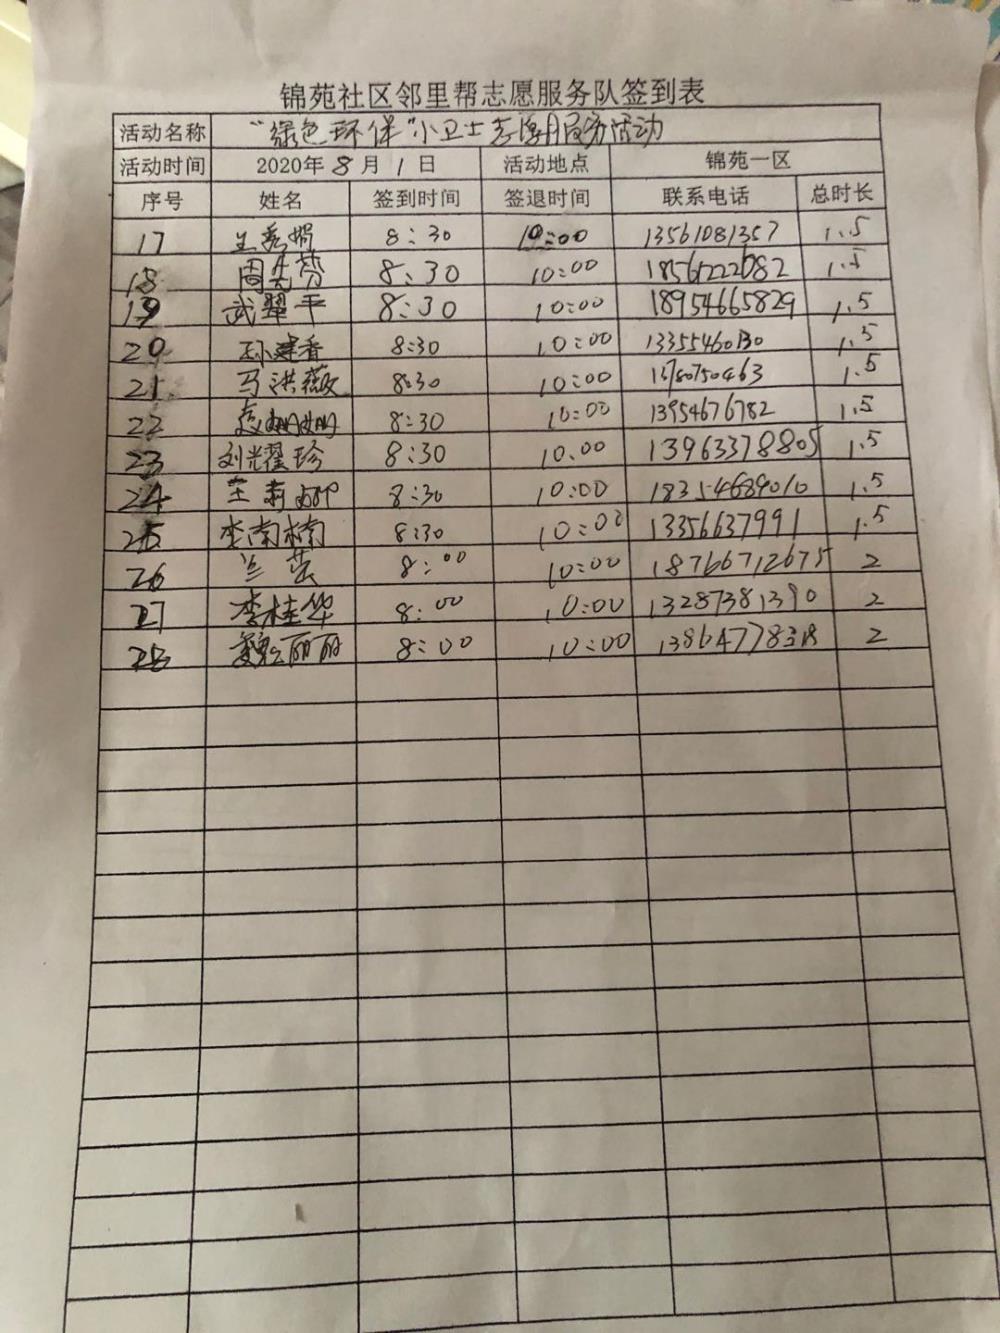 锦苑社区邻里帮志愿服务队签到表
活动名称 “绿色环保”小卫士志愿服务活动
活动时间 2020年8月1日 活动地点 锦苑一区
序号 姓名 签到时间 签退时间 联系电话 总时长
17 王秀娟 8:30 10:00 13561081357 1.5
18 周先芬 8:30 10:00 18561222682 1.5
19 武翠平 8:30 10:00 18954665829 1.5
20 孙建香 8:30 10:00 13355460130 1.5
21 马洪薇 8:30 10:00 13780750463 1.5
22 8:30 10:00 13954676782 1.5
23 刘耀珍 8:30 10:00 13963378805 1.5
24 王莉 8:30 10:00 18354689010 1.5
25 李南楠 8:30 10:00 13356637991 1.5
26 兰芸 8:00 10:00 18766712675 2
27 李桂华 8:00 10:00 13287381390 2
28 魏丽丽 8:00 10:00 13864778318 2